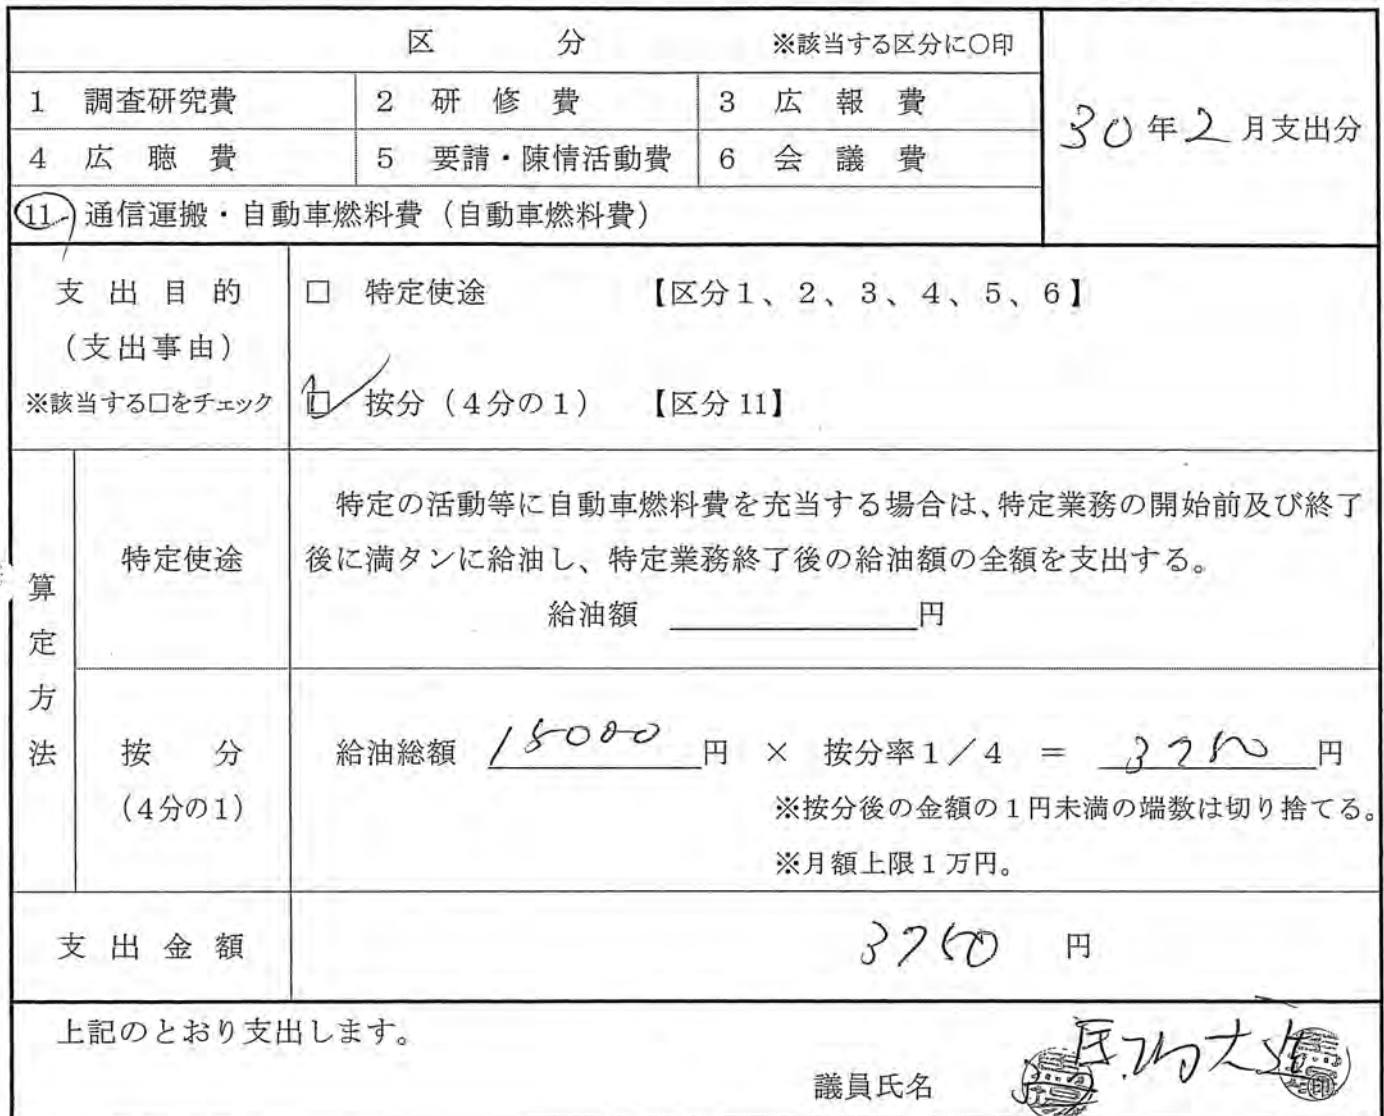 区 分 ※該当する区分に○印
1 調査研究費 2 研 修 費 3 広 報 費
30年2月支出分
4 広 聴 費 5 要請・陳情活動費 6 会 議 費
11 通信運搬・自動車燃料費（自動車燃料費）
支 出 目 的
（支出事由）
※該当する□をチェック
□ 特定使途 【区分1、2、3、4、5、6】
□ 按分（4分の1） 【区分11】
算定方法
特定使途
特定の活動等に自動車燃料費を充当する場合は、特定業務の開始前及び終了
後に満タンに給油し、特定業務終了後の給油額の全額を支出する。
給油額 円
按 分
（4分の1）
給油総額 15000 円 × 按分率1／4 ＝ 3750 円
※按分後の金額の1円未満の端数は切り捨てる。
※月額上限1万円。
支 出 金 額 3750 円
上記のとおり支出します。
議員氏名